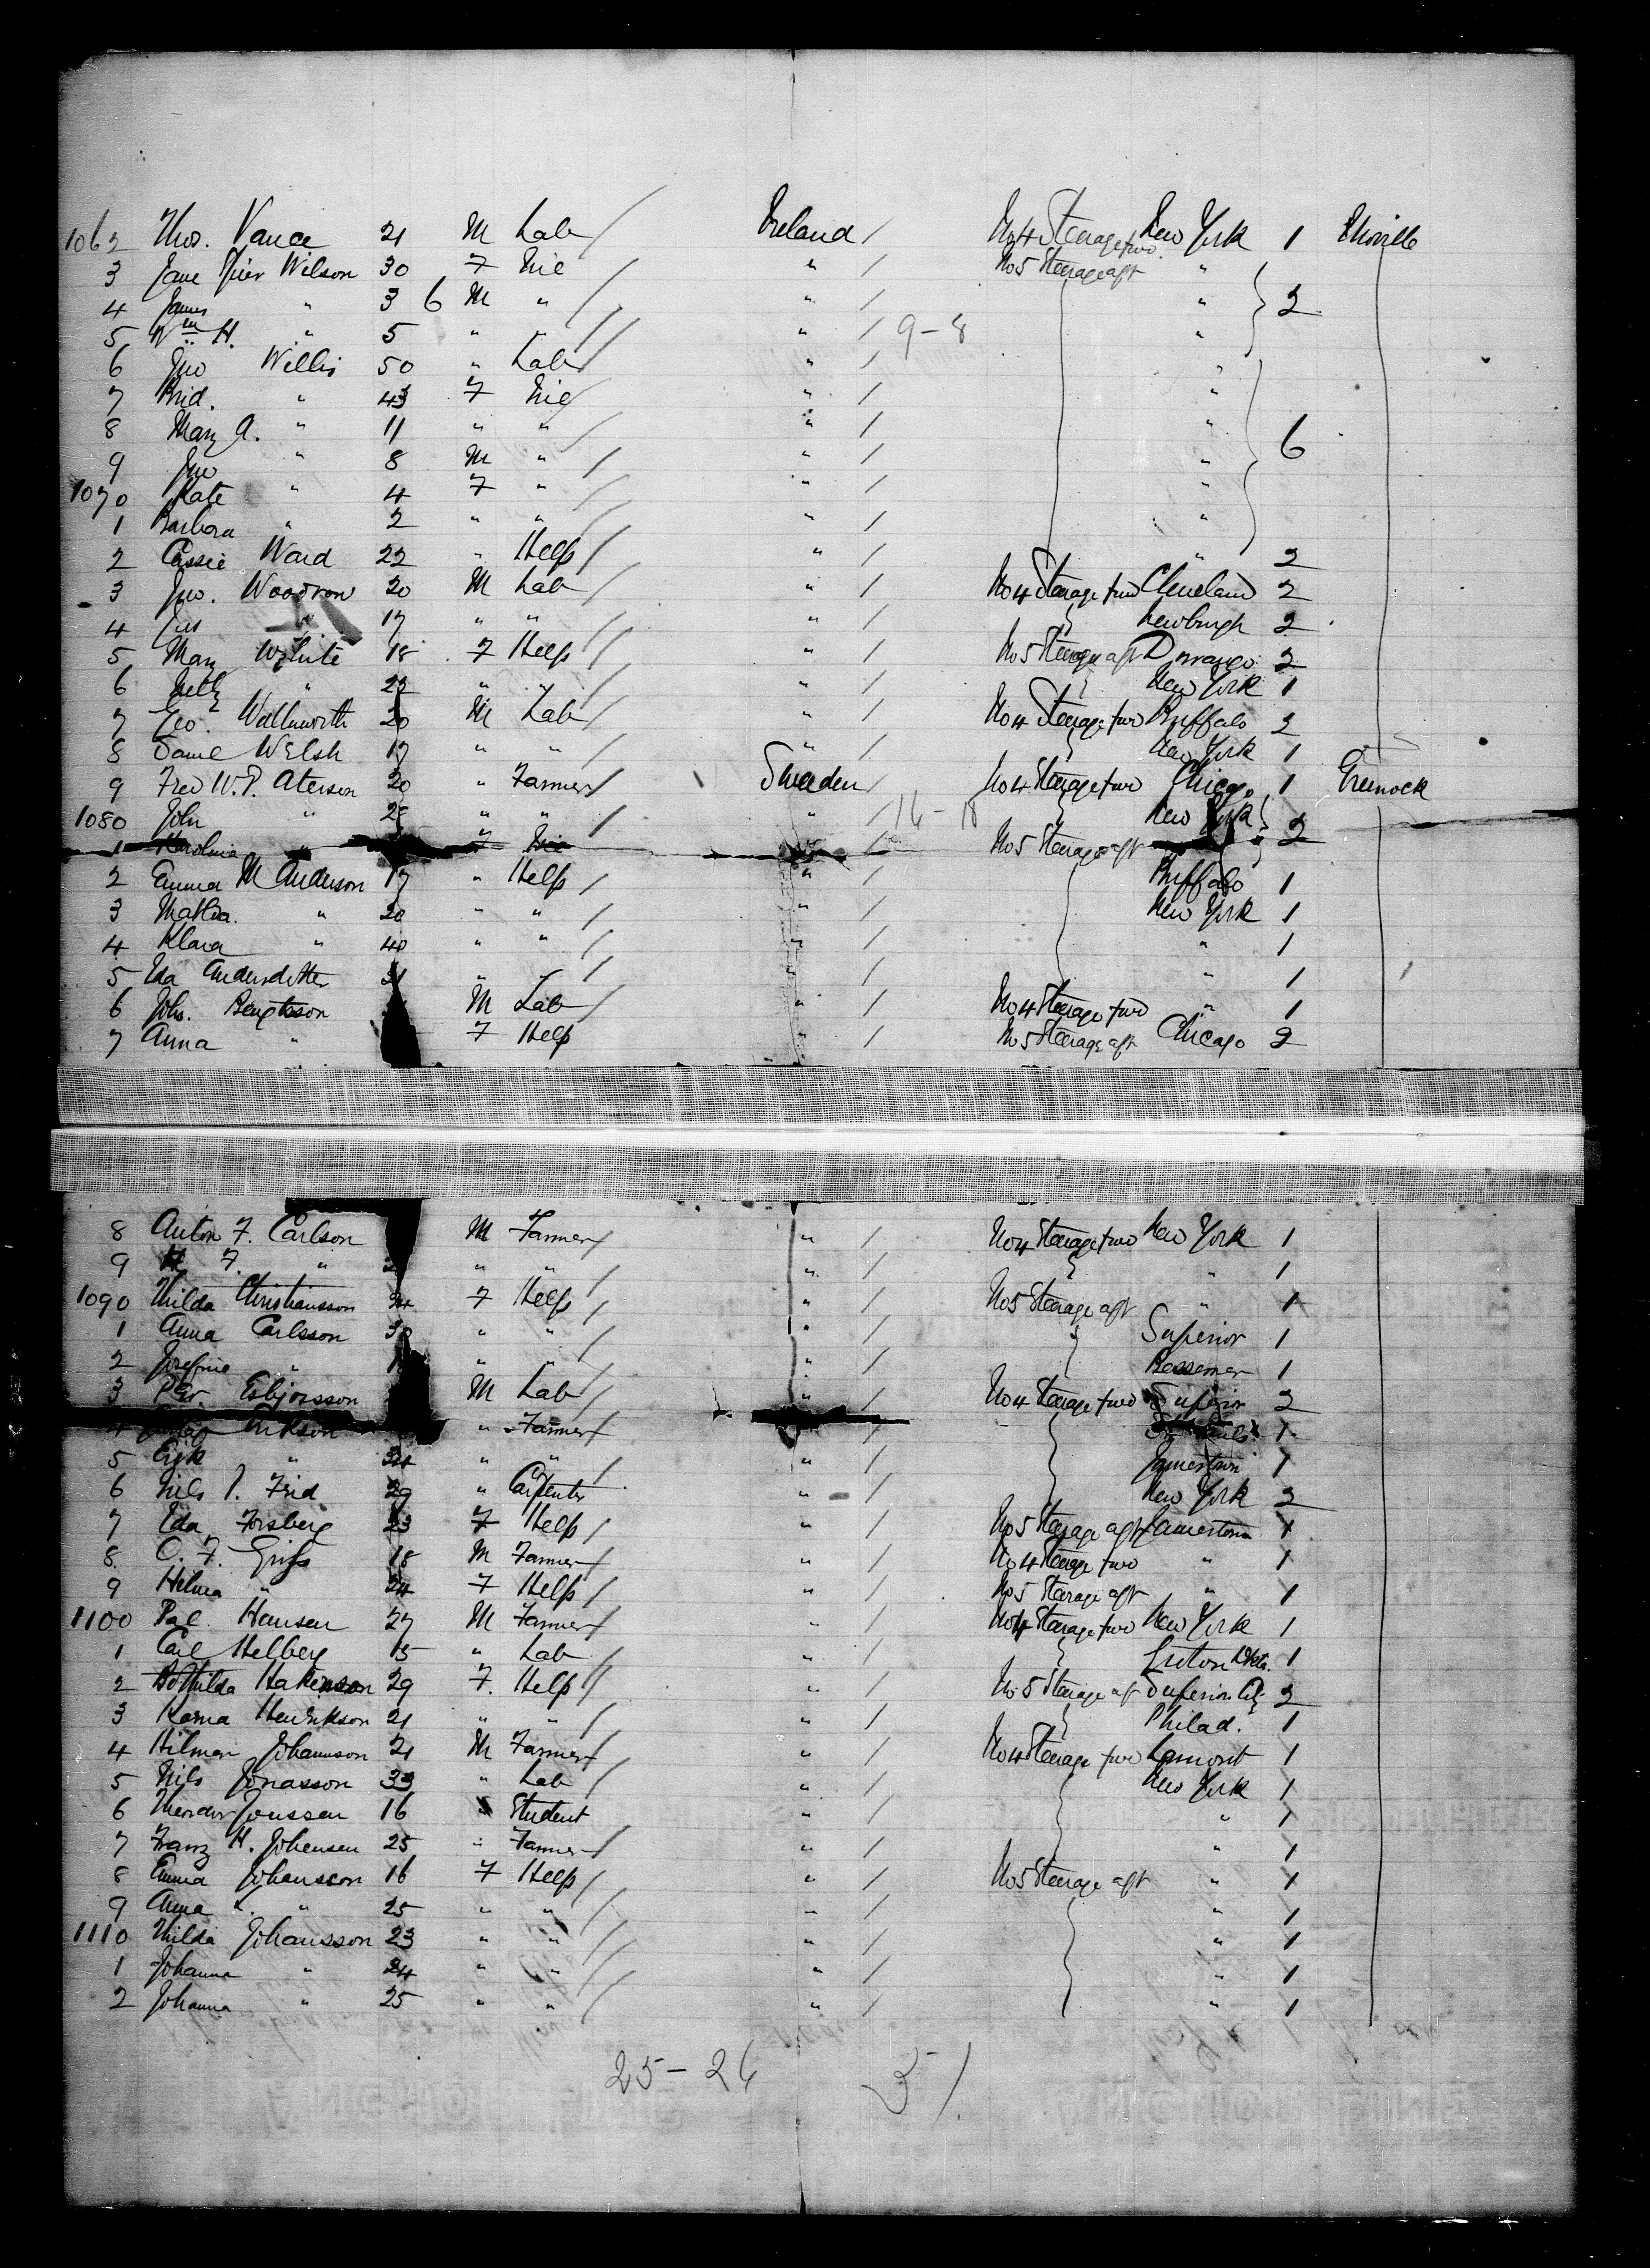 1062 Thos. Vance 21 M Lab / Ireland / No 4 Steerage fwd. New York 1 Moville
3 Jane Spier Wilson 30 F Nil / " / No 5 Steerage aft "
4 James " 3 6 M " / " / " 2
5 Wm H. " 5 " " / " / 9-8 "
6 Jno Willis 50 " Lab / " / "
7 Brid. " 43 F Nil / " / "
8 Mary A. " 11 " " / " / " 6
9 Jno " 8 M " / " / "
1070 Kate " 4 F " / " / "
1 Barbara " 2 " " / " / "
2 Cassie Ward 22 " Help / " / " 2
3 Jno. Woodrow 20 M Lab / " / No 4 Steerage fwd Cleveland 2
4 Jas " 17 " " / " / Newburgh 2
5 Mary White 18 F Help / " / No 5 Steerage aft Durango 2
6 " " / " / New York 1
7 Geo. Wallworth 20 M Lab / " / No 4 Steerage fwd Buffalo 2
8 Daml Welsh 17 " " / " / New York 1
9 Fred W. P. Aterson 20 " Farmer / Sweden / No 4 Steerage fwd Chicago 1 Greenock
1080 John " 28 " " / " / 16-18 New York 2
1 Karolina " F / No 5 Steerage aft
2 Emma M Anderson 17 " Help / " / Buffalo 1
3 Mathia. " 20 " " / " / New York 1
4 Klara " 40 " " / " / " 1
5 Ida Andersdotter 31 " " / " / " 1
6 Johs. Bengtsson M Lab / " / No 4 Steerage fwd " 1
7 Anna " F Help " / No 5 Steerage aft Chicago 2
8 Anton F. Carlson M Farmer / " / No 4 Steerage fwd New York 1
9 F. " " " / " / " 1
1090 Hilda Christiansson 24 F Help / " / No 5 Steerage aft " 1
1 Anna Carlsson 30 " " / " / Superior 1
2 Josefine " " " / " / Bessemer 1
3 Per. Esbjorsson M Lab / " / No 4 Steerage fwd Superior 2
4 Erikson " Farmer / / 1
5 Erik " 34 " " / " / Jamestown 1
6 Nils P. Frid 29 " Carpenter " / New York 2
7 Ida Forsberg 23 F Help / " / No 5 Steerage aft Jamestown 1
8 O. F. 18 M Farmer / " / No 4 Steerage fwd " 1
9 Helma " 24 F Help / " / No 5 Steerage aft " 1
1100 Pal Hansen 27 M Farmer / " / No 4 Steerage fwd New York 1
1 Carl Helberg 15 " Lab / " / 1
2 Bothilda Hakenson 29 F. Help / " / No 5 Steerage aft Superior City 2
3 Karna Henrikson 21 " " / " / Philad. 1
4 Hilmer Johannson 21 M Farmer / " / No 4 Steerage fwd Lamont 1
5 Nils Jonasson 33 " Lab / " / New York 1
6 Theodor Jonssen 16 " Student " / " 1
7 Franz H. Johensen 25 " Farmer / " / " 1
8 Emma Johansson 16 F Help / " / No 5 Steerage aft " 1
9 Anna " 25 " " / " / " 1
1110 Hilda Johansson 23 " " / " / " 1
1 Johanna " 24 " " / " / " 1
2 Johanna " 25 " " / " / " 1
25-26 51